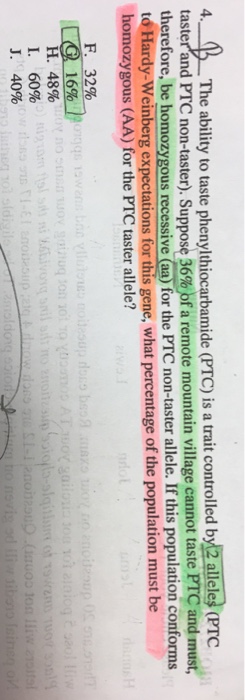 4. B The ability to taste phenylthiocarbamide (PTC) is a trait controlled by 2 alleles (PTC
taster and PTC non-taster). Suppose 36% of a remote mountain village cannot taste PTC and must,
therefore, be homozygous recessive (aa) for the PTC non-taster allele. If this population conforms
to Hardy-Weinberg expectations for this gene, what percentage of the population must be
homozygous (AA) for the PTC taster allele?
F. 32%
G. 16%
H. 48%
I. 60%
J. 40%